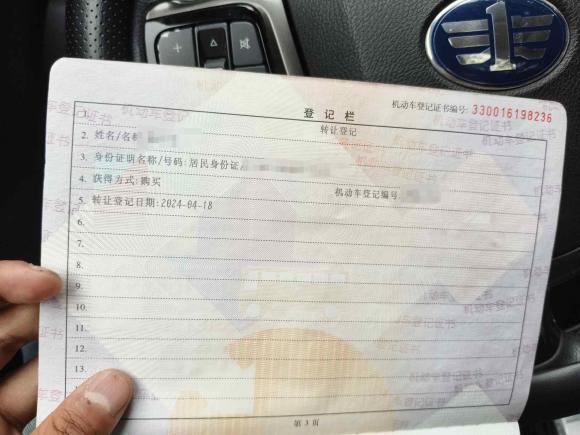 机动车登记证书编号: 330016198236
登记栏
1. 转让登记
2. 姓名/名称
3. 身份证明名称/号码: 居民身份证/
4. 获得方式: 购买 机动车登记编号:
5. 转让登记日期: 2024-04-18
6.
7.
8.
9.
10.
11.
12.
13.
第 3 页